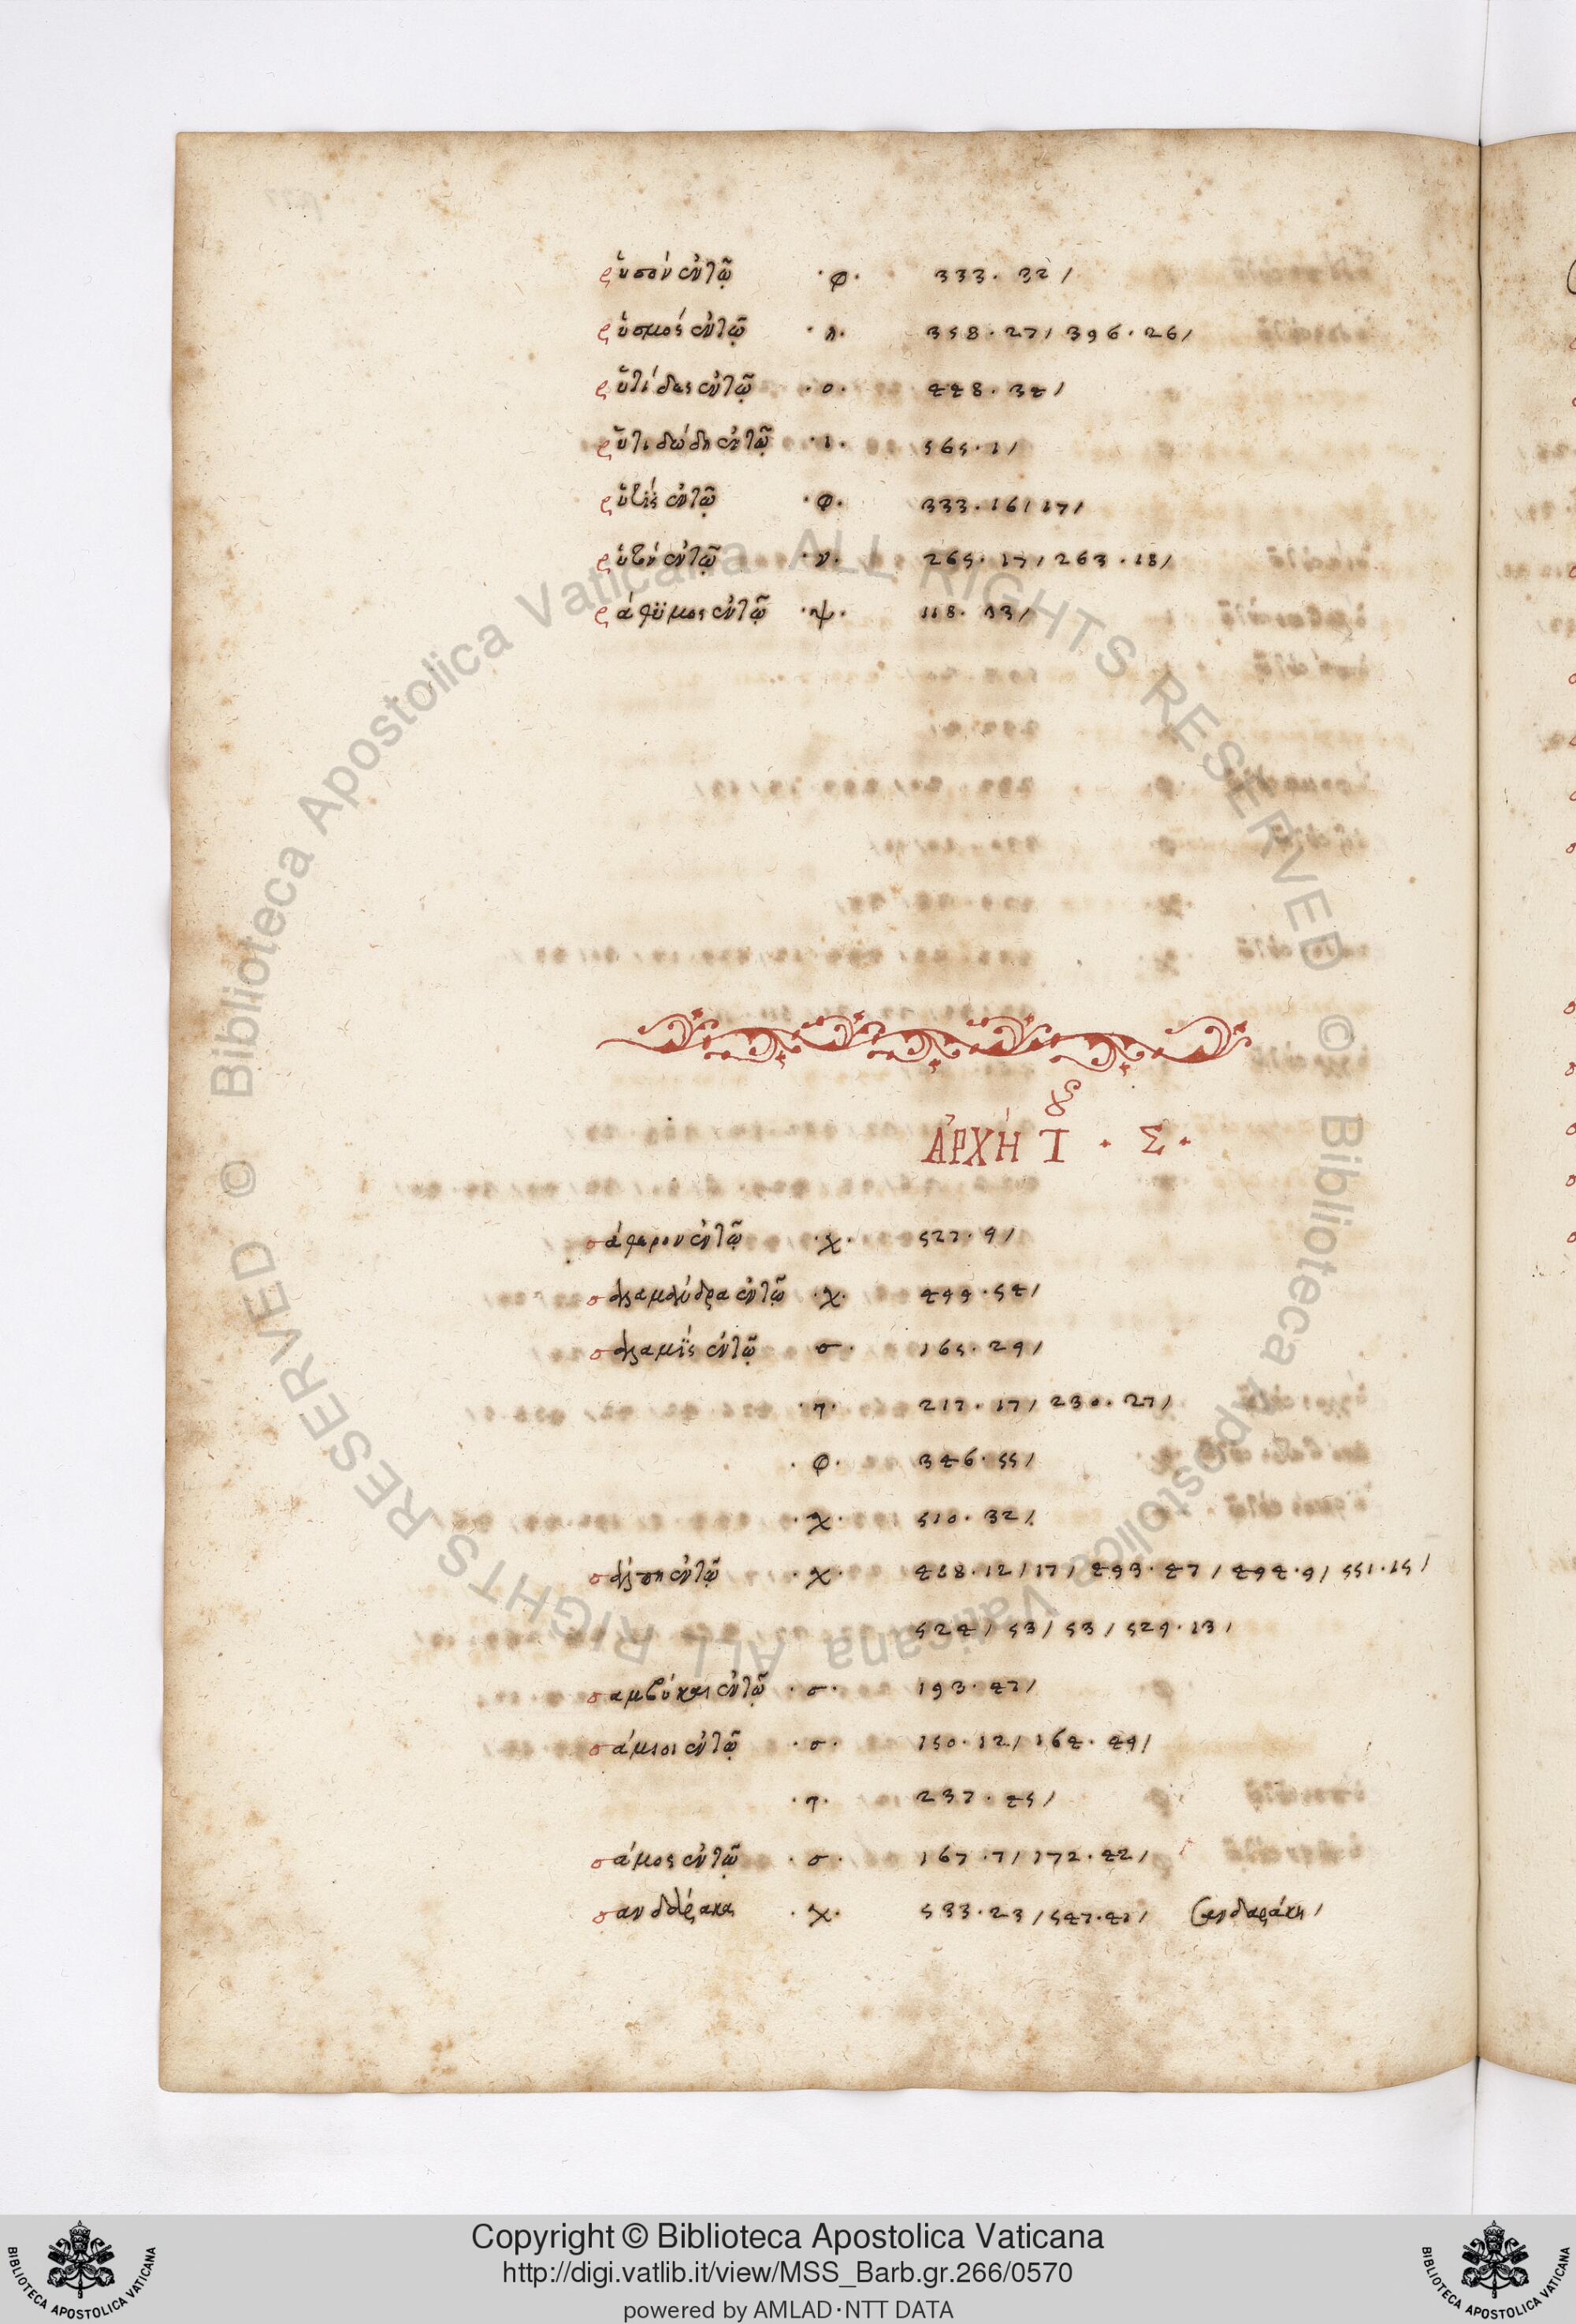 ῥύσον ἐν τῷ ·φ· 333. 32/
ῥυσμός ἐν τῷ ·λ· 358. 27/ 396. 26/
ῥυτίδας ἐν τῷ ·ο· 448. 34/
ῥυτιδώδη ἐν τῷ ·ι· 565. 1/
ἐν τῷ ·φ· 333. 16/ 17/
ἐν τῷ ·ν· 265. 17/ 263. 18/
ἐν τῷ ·ψ· 118. 33/
ἈΡΧῊ ΤΟΥ · Σ ·
ἐν τῷ ·χ· 527. 9/
ἐν τῷ ·χ· 499. 54/
σαλαμίς ἐν τῷ σ· 165. 29/
·τ· 217. 17/ 230. 27/
·φ· 346. 55/
·χ· 510. 32/
σάλπη ἐν τῷ ·χ· 468. 12/ 17/ 493. 47/ 494. 9/ 551. 15/
524/ 53/ 53/ 529. 13/
σαμβύκαι ἐν τῷ ·σ· 193. 47/
σάμιοι ἐν τῷ ·σ· 150. 12/ 164. 49/
·τ· 237. 45/
σάμος ἐν τῷ ·σ· 167. 7/ 172. 42/
σανδαράκα ·χ· 533. 23/ 547. 41/ σανδαράκη/
© Biblioteca Apostolica Vaticana ALL RIGHTS RESERVED
© Biblioteca Apostolica Vaticana ALL RIGHTS RESERVED
BIBLIOTECA APOSTOLICA VATICANA
Copyright © Biblioteca Apostolica Vaticana
http://digi.vatlib.it/view/MSS_Barb.gr.266/0570
powered by AMLAD·NTT DATA
BIBLIOTECA APOSTOLICA VATICANA